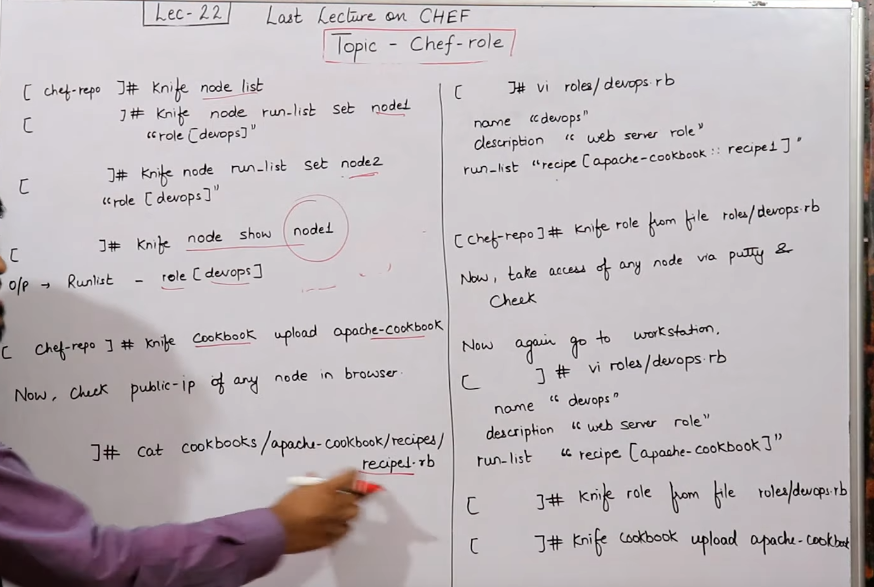 Lec-22 Last Lecture on CHEF
Topic - Chef-role
[ chef-repo ]# Knife node list
[ ]# Knife node run-list set node1
"role [devops]"
[ ]# Knife node run-list set node2
"role [devops]"
[ ]# Knife node show node1
O/P → Runlist - role [devops]
[ chef-repo ] # Knife cookbook upload apache-cookbook
Now, Check public-ip of any node in browser.
]# cat cookbooks/apache-cookbook/recipes/
recipe1.rb
[ ]# vi roles/devops.rb
name "devops"
description "web server role"
run_list "recipe [apache-cookbook :: recipe1]"
[chef-repo]# Knife role from file roles/devops.rb
Now, take access of any node via putty &
Check
Now again go to workstation,
[ ] # vi roles/devops.rb
name "devops"
description "web server role"
run-list "recipe [apache-cookbook]"
[ ]# Knife role from file roles/devops.rb
[ ]# Knife cookbook upload apache-cookbook